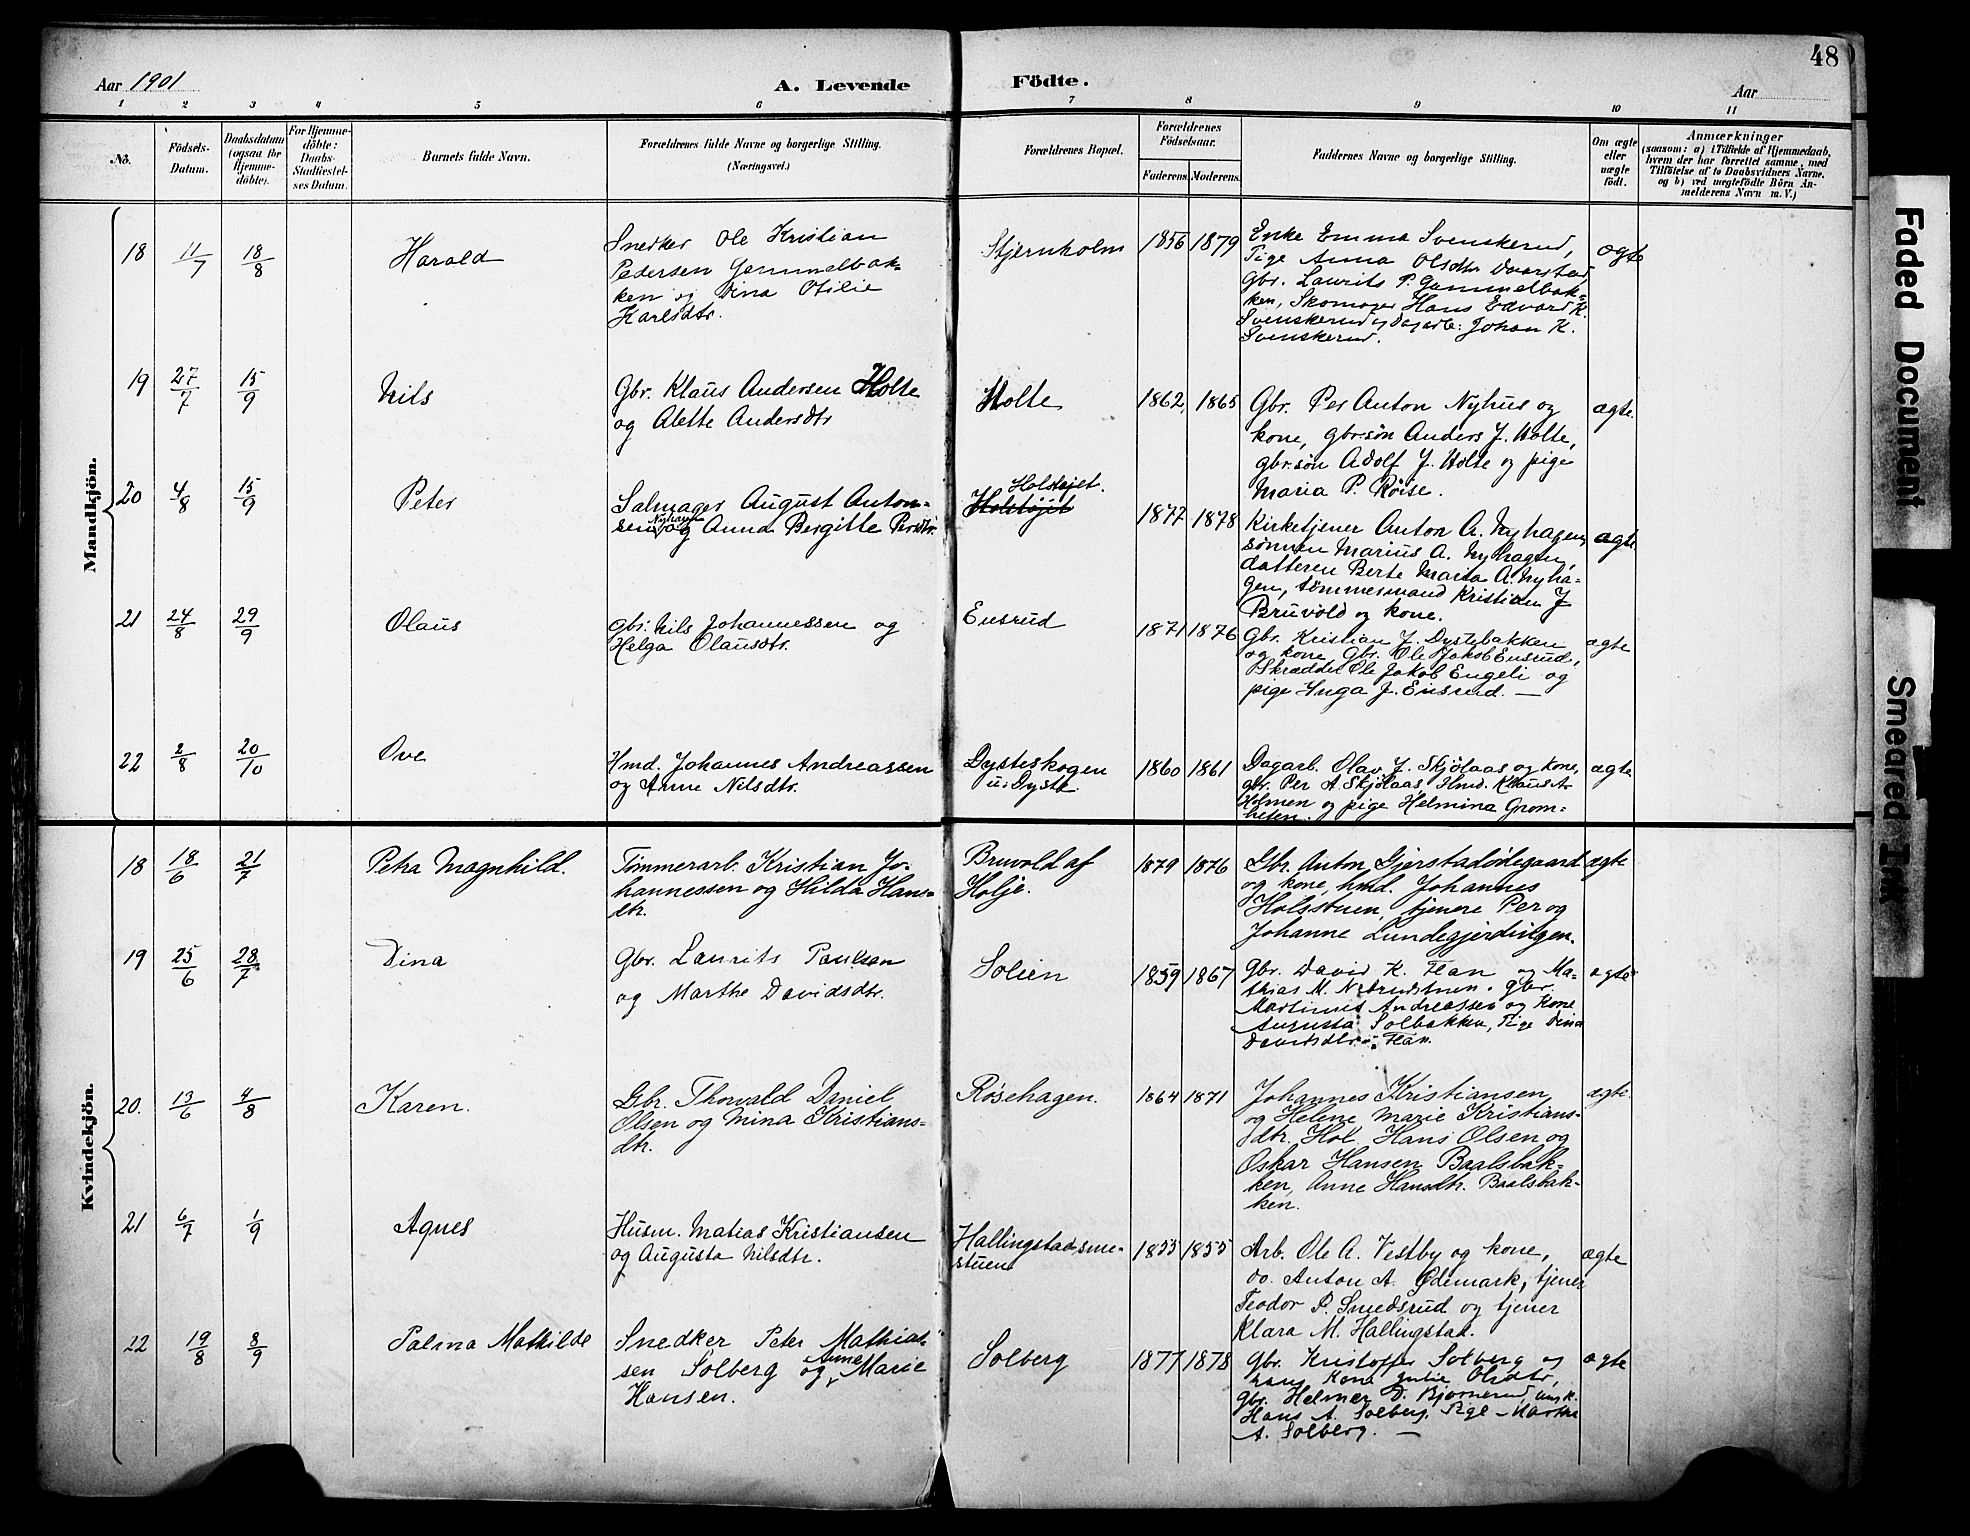 48
Aar 1901
A. Levende Födte.
Aar
1 2 3 4 5 6 7 8 9 10 11
No.
Födsels-
Datum.
Daabsdatum
(ogsaa for
Hjemme-
döbte).
For Hjemme-
döbte:
Daabs-
Stadfæstel-
ses Datum.
Barnets fulde Navn.
Forældrenes fulde Navne og borgerlige Stilling.
(Næringsvei.)
Forældrenes Bopæl.
Forældrenes
Födselsaar.
Faderens. Moderens.
Faddernes Navne og borgerlige Stilling.
Om ægte
eller
uægte
födt.
Anmærkninger
(saasom: a) i Tilfælde af Hjemmedaab,
hvem der har forrettet samme, med
Tilföielse af to Daabsvidners Navne.
og b) ved uægtefödte Börn An-
melderens Navn m. V.)
Mandkjön.
18 11/7 18/8 Harald
Snedker Ole Kristian
Pedersen Gammelbak-
ken og Dina Otilie
Karlsdtr.
Stjernholm 1856 1879
Enke Emma Svenskerud,
Pige Anna Olsdtr Daarstad,
Gbr. Laurits P. Gammelbak-
ken, Skomager Hans Edvard K.
Svenskerud og Dagarb: Johan K.
Svenskerud.
ægte
19 27/7 15/9 Nils
Gbr. Klaus Andersen Holte
og Alette Andersdtr
Holte 1862 1865
Gbr. Per Anton Nyhus og
kone, gbrsøn Anders J. Holte,
gbrsøn Adolf J. Holte og pige
Maria P. Röise.
ægte.
20 4/8 15/9 Peter
Salmager August Anton-
sen Nyhagen og Anna Bergitte Persdtr.
Holstøjet.
Holstøjet
1877 1878
Kirketjener Anton A. Nyhagen,
sönnen Marius A. Nyhagen,
datteren Berte Maria A. Nyha-
gen, tømmermand Kristian J
Bruvold og kone.
ægte
21 24/8 29/9 Olaus
gbr. Nils Johannessen og
Helga Olausdtr.
Ensrud 1871 1876
Gbr. Kristian J. Dystebakken
og kone, Gbr. Ole Jakob Ensrud,
Skrædder Ole Jakob Engeli og
pige Inga J. Ensrud. —
ægte
22 2/8 20/10 Ove
Hmd. Johannes Andreassen
og Anne Nilsdtr.
Dysteskogen
u. Dyste
1860 1861
Dagarb. Olav J. Skjölaas og kone,
gbr. Per A. Skjölaas, Hmd. Klaus A.
Holmen og pige Helmina Grøm-
hesen.
ægte
Kvindekjön.
18 18/6 21/7 Petra Magnhild.
Tømmerarb. Kristian Jo-
hannessen og Hilda Hans-
dtr.
Bruvold af
Holje.
1879 1876
Gbr. Anton Gjerstadødegaard
og kone, hmd. Johannes
Holsstuen, tjenere Per og
Johanne Lundegjerdingen.
ægte
19 25/6 28/7 Dina
Gbr. Laurits Paulsen
og Marthe Davidsdtr.
Solien 1859 1867
Gbr. David K. Flan og Ma-
thias M. gbr.
Martinus Andreassen og Kone
Augusta Solbakken, Pige Dina
Davidsdtr. Flan.
ægte
20. 13/6 4/8 Karen.
Gbr. Thorvald Daniel
Olsen og Mina Kristians-
dtr.
Røsehagen. 1864 1871
Johannes Kristiansen
og Helene Marie Kristians-
dtr. Hol. Hans Olsen og
Oskar Hansen Baalsbak-
ken, Anne Hansdtr. Baalsbak-
ken.
ægte.
21 6/7 1/9 Agnes
Husm. Matias Kristiansen
og Augusta Nilsdtr.
Hallingstadsme-
stuen
1853 1855
Arb. Ole A. Vestby og kone,
do. Anton A. Ødemark, tjener
Teodor P. Smedsrud og tjener
Klara M. Hallingstad.
ægte
22 19/8 8/9 Palma Mathilde
Snedker Peter Mathiat-
sen Solberg og Anne Marie
Hansen.
Solberg 1877 1878
Gbr. Kristoffer Solberg og
hans Kone Julie Olsdtr,
gbr. Helmer D. Bjørnerud, ungk.
Hans A. Solberg, Pige Marthe
A. Solberg. —
ægte
Faded Document
Smeared Ink